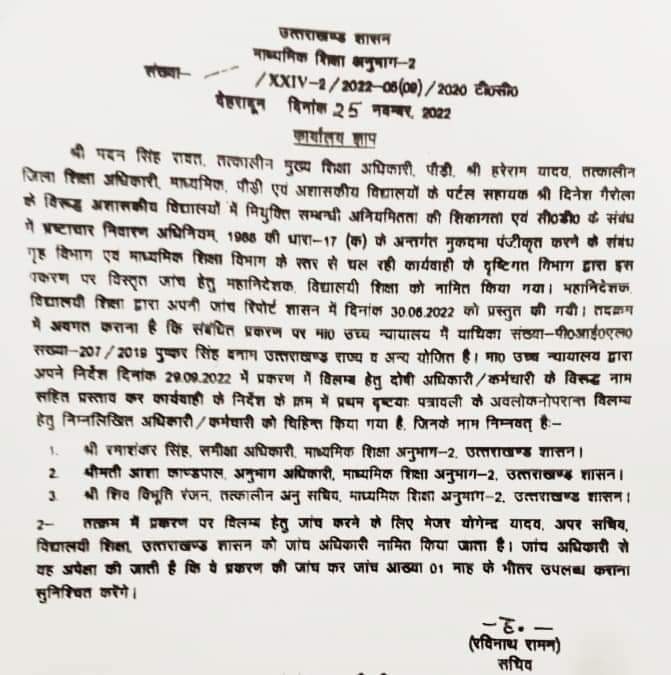 उत्तराखण्ड शासन
माध्यमिक शिक्षा अनुभाग-2
संख्या- /XXIV-2/2022-05(09)/2020 टी०सी०
देहरादून दिनांक 25 नवम्बर, 2022
कार्यालय ज्ञाप
श्री मदन सिंह रावत, तत्कालीन मुख्य शिक्षा अधिकारी, पौड़ी, श्री हरेराम यादव, तत्कालीन
जिला शिक्षा अधिकारी, माध्यमिक, पौड़ी एवं अशासकीय विद्यालयों के पटल सहायक श्री दिनेश गैरोला
के विरूद्ध अशासकीय विद्यालयों में नियुक्ति सम्बन्धी अनियमितता की शिकायतों एवं सी०डी० के संबंध
में भ्रष्टाचार निवारण अधिनियम, 1988 की धारा-17 (क) के अन्तर्गत मुकदमा पंजीकृत करने के संबंध
गृह विभाग एवं माध्यमिक शिक्षा विभाग के स्तर से चल रही कार्यवाही के दृष्टिगत विभाग द्वारा इस
प्रकरण पर विस्तृत जांच हेतु महानिदेशक, विद्यालयी शिक्षा को नामित किया गया। महानिदेशक,
विद्यालयी शिक्षा द्वारा अपनी जांच रिपोर्ट शासन में दिनांक 30.06.2022 को प्रस्तुत की गयी। तदक्रम
में अवगत कराना है कि संबंधित प्रकरण पर मा० उच्च न्यायालय में याचिका संख्या-पी०आई०एल०
संख्या-207/2019 पुष्कर सिंह बनाम उत्तराखण्ड राज्य व अन्य योजित है। मा० उच्च न्यायालय द्वारा
अपने निर्देश दिनांक 29.09.2022 में प्रकरण में विलम्ब हेतु दोषी अधिकारी/कर्मचारी के विरूद्ध नाम
सहित प्रस्ताव कर कार्यवाही के निर्देश के क्रम में प्रथम दृष्टयाः पत्रावली के अवलोकनोपरान्त विलम्ब
हेतु निम्नलिखित अधिकारी/कर्मचारी को चिन्हित किया गया है, जिनके नाम निम्नवत् है:-
1. श्री रमाशंकर सिंह, समीक्षा अधिकारी, माध्यमिक शिक्षा अनुभाग-2, उत्तराखण्ड शासन।
2. श्रीमती आशा काण्डपाल, अनुभाग अधिकारी, माध्यमिक शिक्षा अनुभाग-2, उत्तराखण्ड शासन।
3. श्री शिव विभूति रंजन, तत्कालीन अनु सचिव, माध्यमिक शिक्षा अनुभाग-2, उत्तराखण्ड शासन।
2- तत्क्रम में प्रकरण पर विलम्ब हेतु जांच करने के लिए मेजर योगेन्द्र यादव, अपर सचिव,
विद्यालयी शिक्षा, उत्तराखण्ड शासन को जांच अधिकारी नामित किया जाता है। जांच अधिकारी से
यह अपेक्षा की जाती है कि वे प्रकरण की जांच कर जांच आख्या 01 माह के भीतर उपलब्ध कराना
सुनिश्चित करेंगे।
-ह.-
(रविनाथ रामन)
सचिव